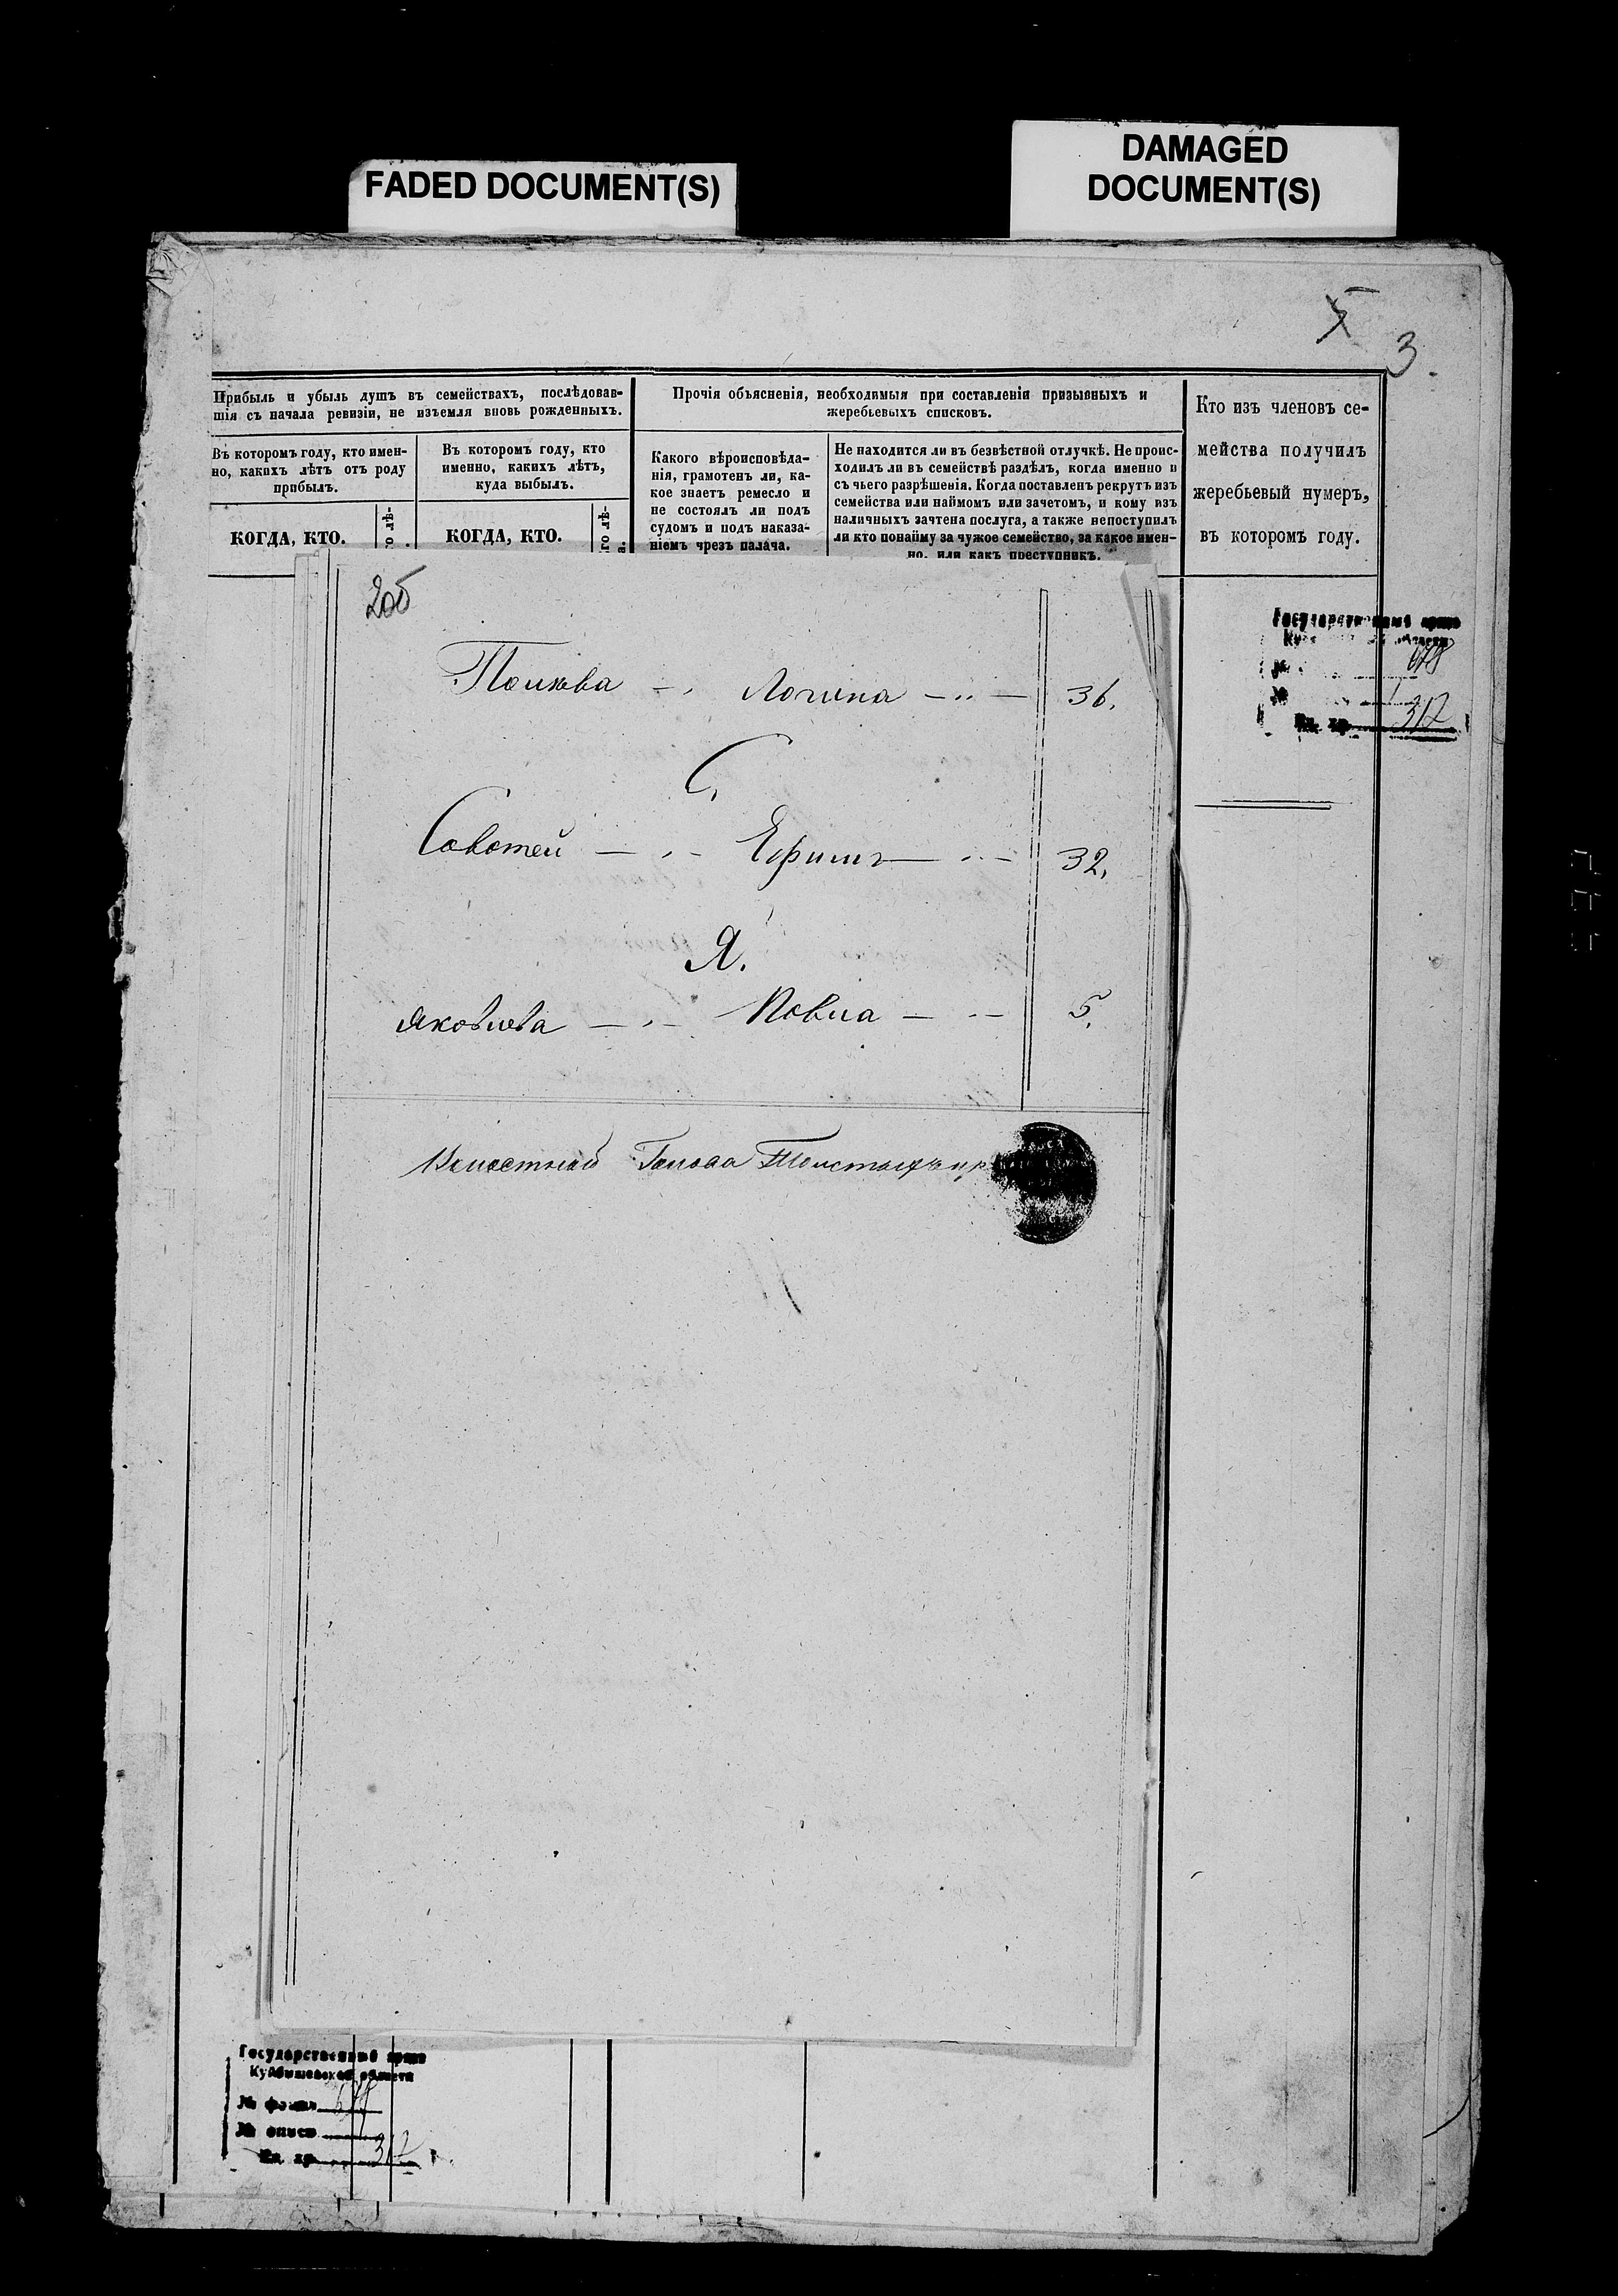 FADED DOCUMENT(S)
DAMAGED
DOCUMENT(S)
5
3
Прибыль и убыль душъ въ семействахъ, послѣдовав-
шія съ начала ревизіи, не изъемля вновь рожденныхъ.
Въ которомъ году, кто имен-
но, какихъ лѣтъ отъ роду
прибылъ.
Въ которомъ году, кто
именно, какихъ лѣтъ,
куда выбылъ.
КОГДА, КТО.
го лѣ-
КОГДА, КТО.
го лѣ-
Прочія объясненія, необходимыя при составленіи призывныхъ и
жеребьевыхъ списковъ.
Какого вѣроисповѣда-
нія, грамотенъ ли, ка-
кое знаетъ ремесло и
не состоялъ ли подъ
судомъ и подъ наказа-
ніемъ чрезъ палача.
Не находится ли въ безвѣстной отлучкѣ. Не проис-
ходилъ ли въ семействѣ раздѣлъ, когда именно и
съ чьего разрѣшенія. Когда поставленъ рекрутъ изъ
семейства или наймомъ или зачетомъ, и кому изъ
наличныхъ зачтена послуга, а также непоступилъ
ли кто понайму за чужое семейство, за какое имен-
но, или какъ преступникъ.
Кто изъ членовъ се-
мейства получилъ
жеребьевый нумеръ,
въ которомъ году.
2об
Логина 36.
С.
Савотей Ефимъ 32.
Я.
Яковлева Павла 5.
Волостной Голова
Государственный архив
312
Государственный архив
Куйбышевской области
№ фонда
№ описи
Ед. хр. 312